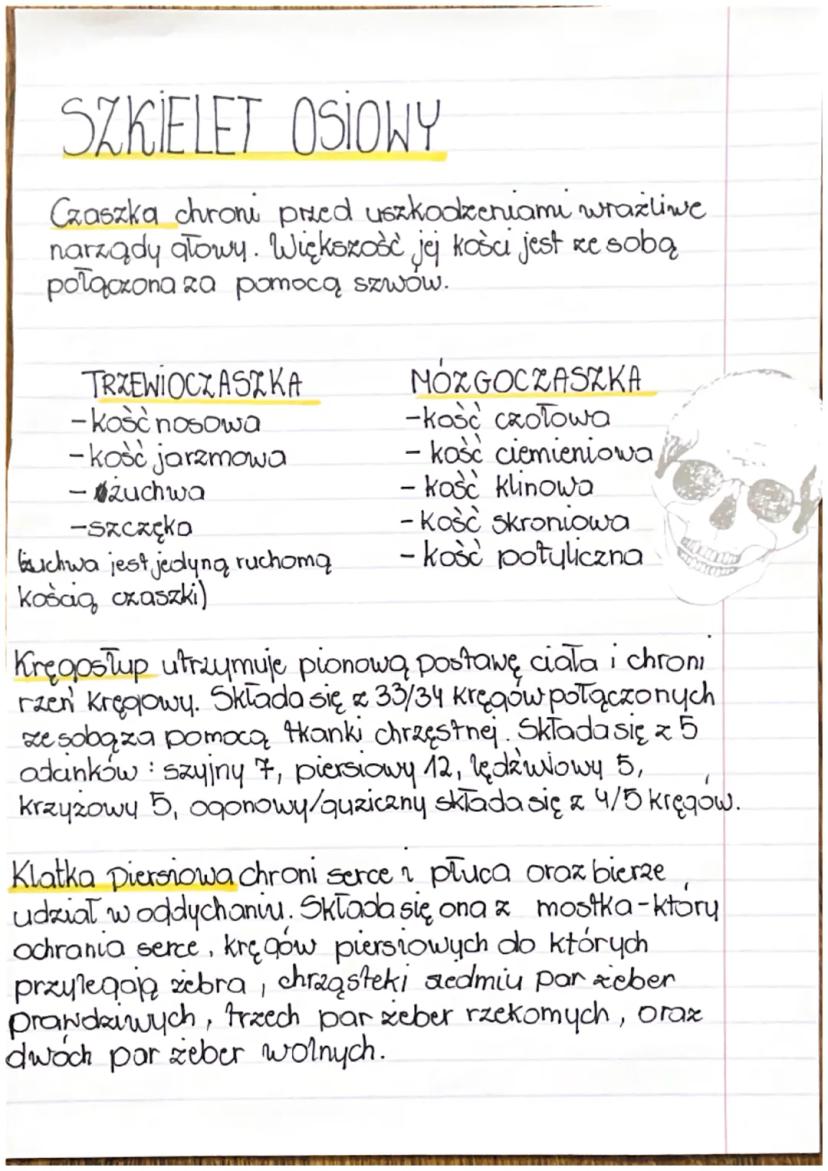 SZKIELET OSIOWY
Czaszka chroni przed uszkodzeniami wrażliwe
narządy głowy. Większość jej kości jest ze sobą
połączona za pomocą szwów.
TRZEWIOCZASZKA
-kość nosowa
-kość jarzmowa
-żuchwa
-szczęka
(żuchwa jest jedyną ruchomą
kością czaszki)
MÓZGOCZASZKA
-kość czołowa
-kość ciemieniowa
-kość klinowa
-kość skroniowa
-kość potyliczna
Kręgosłup utrzymuje pionową postawę ciała i chroni
rzeń kręgowy. Składa się z 33/34 kręgów połączonych
ze sobą za pomocą tkanki chrzęstnej. Składa się z 5
odcinków: szyjny 7, piersiowy 12, lędźwiowy 5,
krzyżowy 5, ogonowy/guziczny składa się z 4/5 kręgów.
Klatka piersiowa chroni serce i płuca oraz bierze
udział w oddychaniu. Składa się ona z mostka-który
ochrania serce, kręgów piersiowych do których
przylegają żebra, chrząsteki siedmiu par żeber
prawdziwych, trzech par żeber rzekomych, oraz
dwóch par żeber wolnych.